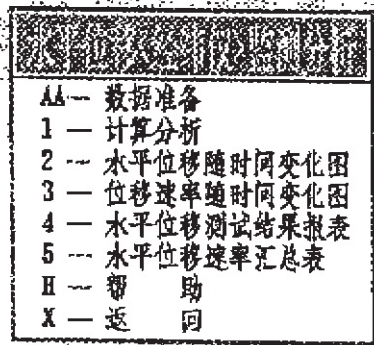 AA— 数据准备
1 — 计算分析
2 — 水平位移随时间变化图
3 — 位移速率随时间变化图
4 — 水平位移测试结果报表
5 — 水平位移速率汇总表
H — 帮 助
X — 返 回